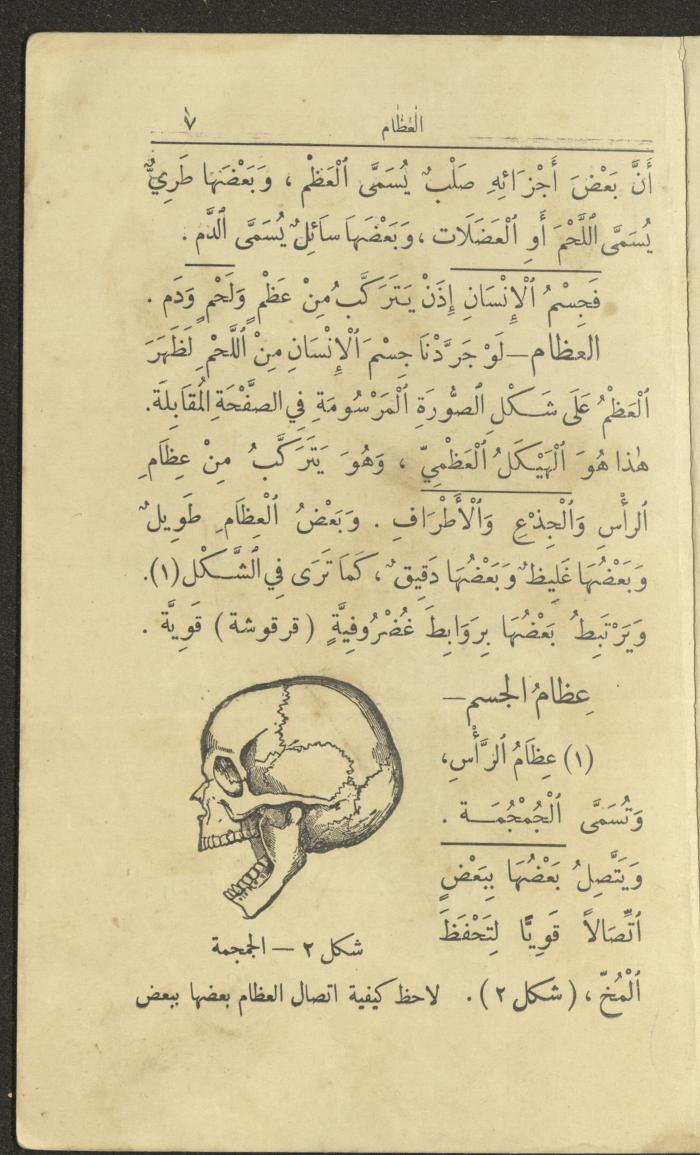 العظام ٧
أَنَّ بَعْضَ أَجْزَائِهِ صَلْبٌ يُسَمَّى ٱلْعَظْمَ ، وَبَعْضَهَا طَرِيٌّ
يُسَمَّى ٱللَّحْمَ أَوِ ٱلْعَضَلَات ، وَبَعْضَهَا سَائِلٌ يُسَمَّى ٱلدَّم .
فَجِسْمُ ٱلْإِنْسَانِ إِذَنْ يَتَرَكَّبُ مِنْ عَظْمٍ وَلَحْمٍ وَدَم .
العظام – لَوْ جَرَّدْنَا جِسْمَ ٱلْإِنْسَانِ مِنْ ٱللَّحْمِ لَظَهَرَ
ٱلْعَظْمُ عَلَى شَكْلِ ٱلصُّورَةِ ٱلْمَرْسُومَةِ فِي الصفَّحَةِ المُقَابِلَة.
هٰذا هُوَ ٱلْهَيْكَلُ ٱلْعَظْمِيّ ، وَهُوَ يَتَرَكَّبُ مِنْ عِظَامِ
ٱلرأْسِ وَٱلْجِذْعِ وَٱلْأَطْرَافِ . وَبَعْضُ ٱلْعِظَامِ طَوِيلٌ
وَبَعْضُهَا غَلِيظٌ وَبَعْضُهَا دَقِيقٌ ، كَمَا تَرَى فِي ٱلشَّكْل (١).
وَيَرْتَبِطُ بَعْضُهَا بِرَوَابِطَ غُضْرُوفِيَّةٍ (قرقوشة) قَوِيَّة .
عِظامُ الجسم –
(١) عِظَامُ ٱلرَّأْسِ،
وَتُسَمَّى ٱلْجُمْجُمَة .
وَيَتَّصِلُ بَعْضُهَا بِبَعْضٍ
ٱتِّصَالاً قَوِيًّا لِتَحْفَظَ
شكل ٢ – الجمجمة
ٱلْمُخّ ، (شكل ٢) . لاحظ كيفية اتصال العظام بعضها ببعض